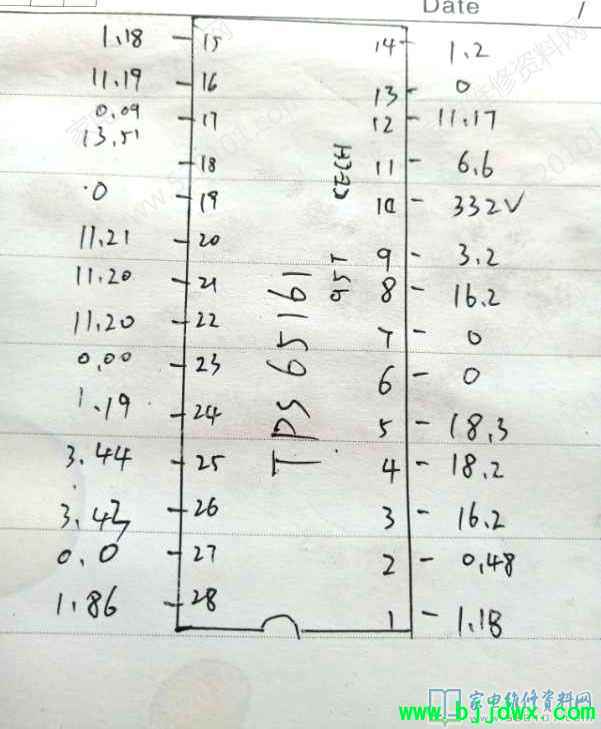 Date /
1.18 - 15 14 - 1.2
11.19 - 16 13 - 0
0.09
13.51 - 17 12 - 11.17
- 18 11 - 6.6
.0 - 19 10 - 332V
11.21 - 20 9 - 3.2
11.20 - 21 8 - 16.2
11.20 - 22 7 - 0
0.00 - 23 6 - 0
1.19 - 24 5 - 18.3
3.44 - 25 4 - 18.2
3.43 - 26 3 - 16.2
0.0 - 27 2 - 0.48
1.86 - 28 1 - 1.18
TPS65161
95T
家电维修资料网
www.bjjdwx.com